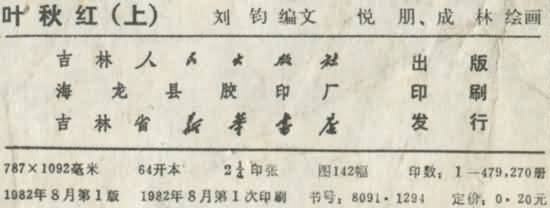 叶秋红（上） 刘 钧 编文 悦 朋、成 林 绘画
吉林人民出版社 出版
海龙县胶印厂 印刷
吉林省新华书店 发行
787×1092毫米 64开本 2 1/4 印张 图142幅 印数：1—479,270册
1982年8月第1版 1982年8月第1次印刷 书号：8091·1294 定价：0·20元